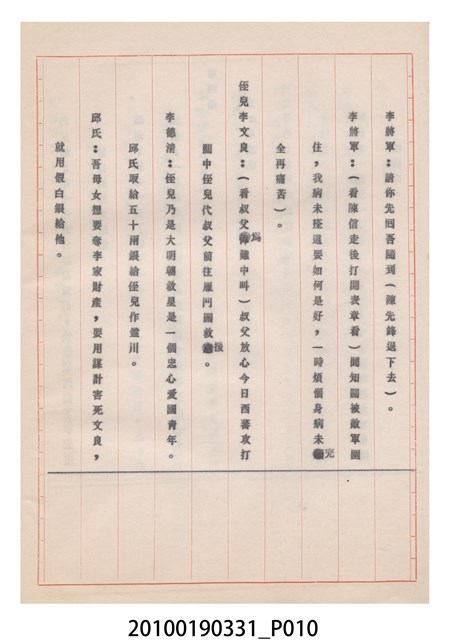 李將軍：請你先回吾隨到（陳先鋒退下去）。
李將軍：（看陳信走後打開表章看）聞知關被敵軍圍
住，我病未痊這要如何是好，一時煩惱身病未完
全再痛苦）。
侄兒李文良：（看叔父為難中叫）叔父放心今日西蕃攻打
關中侄兒代叔父前往雁門關救援。
李德清：侄兒乃是大明朝救星是一個忠心愛國青年。
邱氏取給五十兩銀給侄兒作盤川。
邱氏：吾母女想要奪李家財產，要用謀計害死文良，
就用假白銀給他。
20100190331_P010